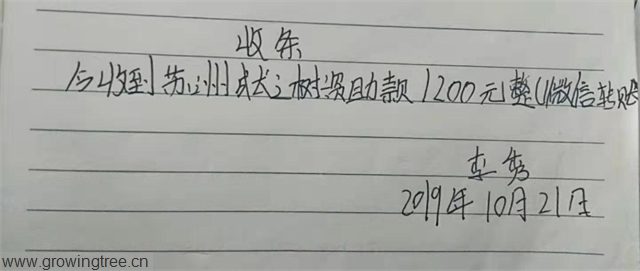 收条
今收到苏州成长之树资助款1200元整(微信转账
李秀
2019年10月21日
www.growingtree.cn